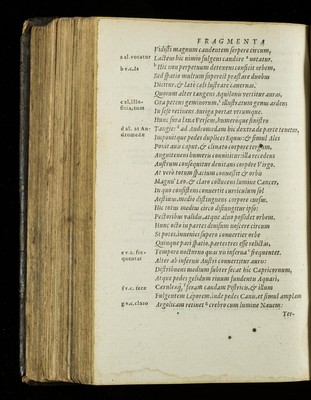 FRAGMENTA
Vidisti magnum candentem serpere circum,
a al. vocatur Lacteus hic nimio fulgens candore ᵃ notatur.
b v.c. &c ᵇ Hic non perpetuum detexens conficit orbem,
Sed spatio multum superest præstare duobus
Dicitur, & late cæli lustrare cavernas.
Quorum alter tangens Aquilonis vertitur auras,
c al. illu-
stria, tum Ora petens geminorum, ᶜ illustratum genus ardens
In sese retinens Auriga portat utrumque.
Hunc sura læva Perseus, humeroque sinistro
d al. at An-
dromedæ Tangit: ᵈ ad Andromedam hic dextra de parte tenetur,
Imponitque pedes duplices Equus: & simul Ales
Ponit avis caput, & clinato corpore tergum,
Anguitenens humeris connititur: illa recedens
Austrum consequitur devitans corpore Virgo.
At vero totum spatium convestit & orbis
Magnu' Leo, & claro collucens lumine Cancer,
In quo consistens convertit curriculum sol
Aestivus, medio distinguens corpore cursus.
Hic totus medius circo disiungitur ipso:
Pectoribus validis, atque alvo possidet orbem.
Hunc octo in partes divisum noscere circum
Si potes, invenies supero convertier orbe
Quinque pari spatio, partes tres esse relictas,
e v.c. fre-
quentat Tempore nocturno quas vis inferna ᵉ frequentet.
Alter ab infernis Austri convertitur auris:
Distribuens medium subter secat hic Capricornum,
Atque pedes gelidum rivum fundentis Aquari,
f v.c. feræ Cæruleæq; ᶠ feram caudam Pistricis, & illum
Fulgentem Leporem, inde pedes Canis, et simul amplam
g v.c. claro Argolicam retinet ᵍ crebro cum lumine Navem:
Ter-